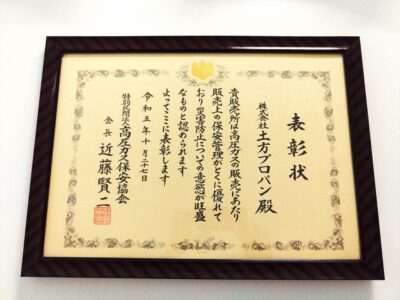 表彰状
株式会社 土方プロパン 殿
貴販売所は高圧ガスの販売にあたり
販売上の保安管理がとくに優れて
おり災害防止についての意欲が旺盛
なものと認められます
よってここに表彰します
令和五年十月二十七日
特別民間法人 高圧ガス保安協会
会長 近藤賢二